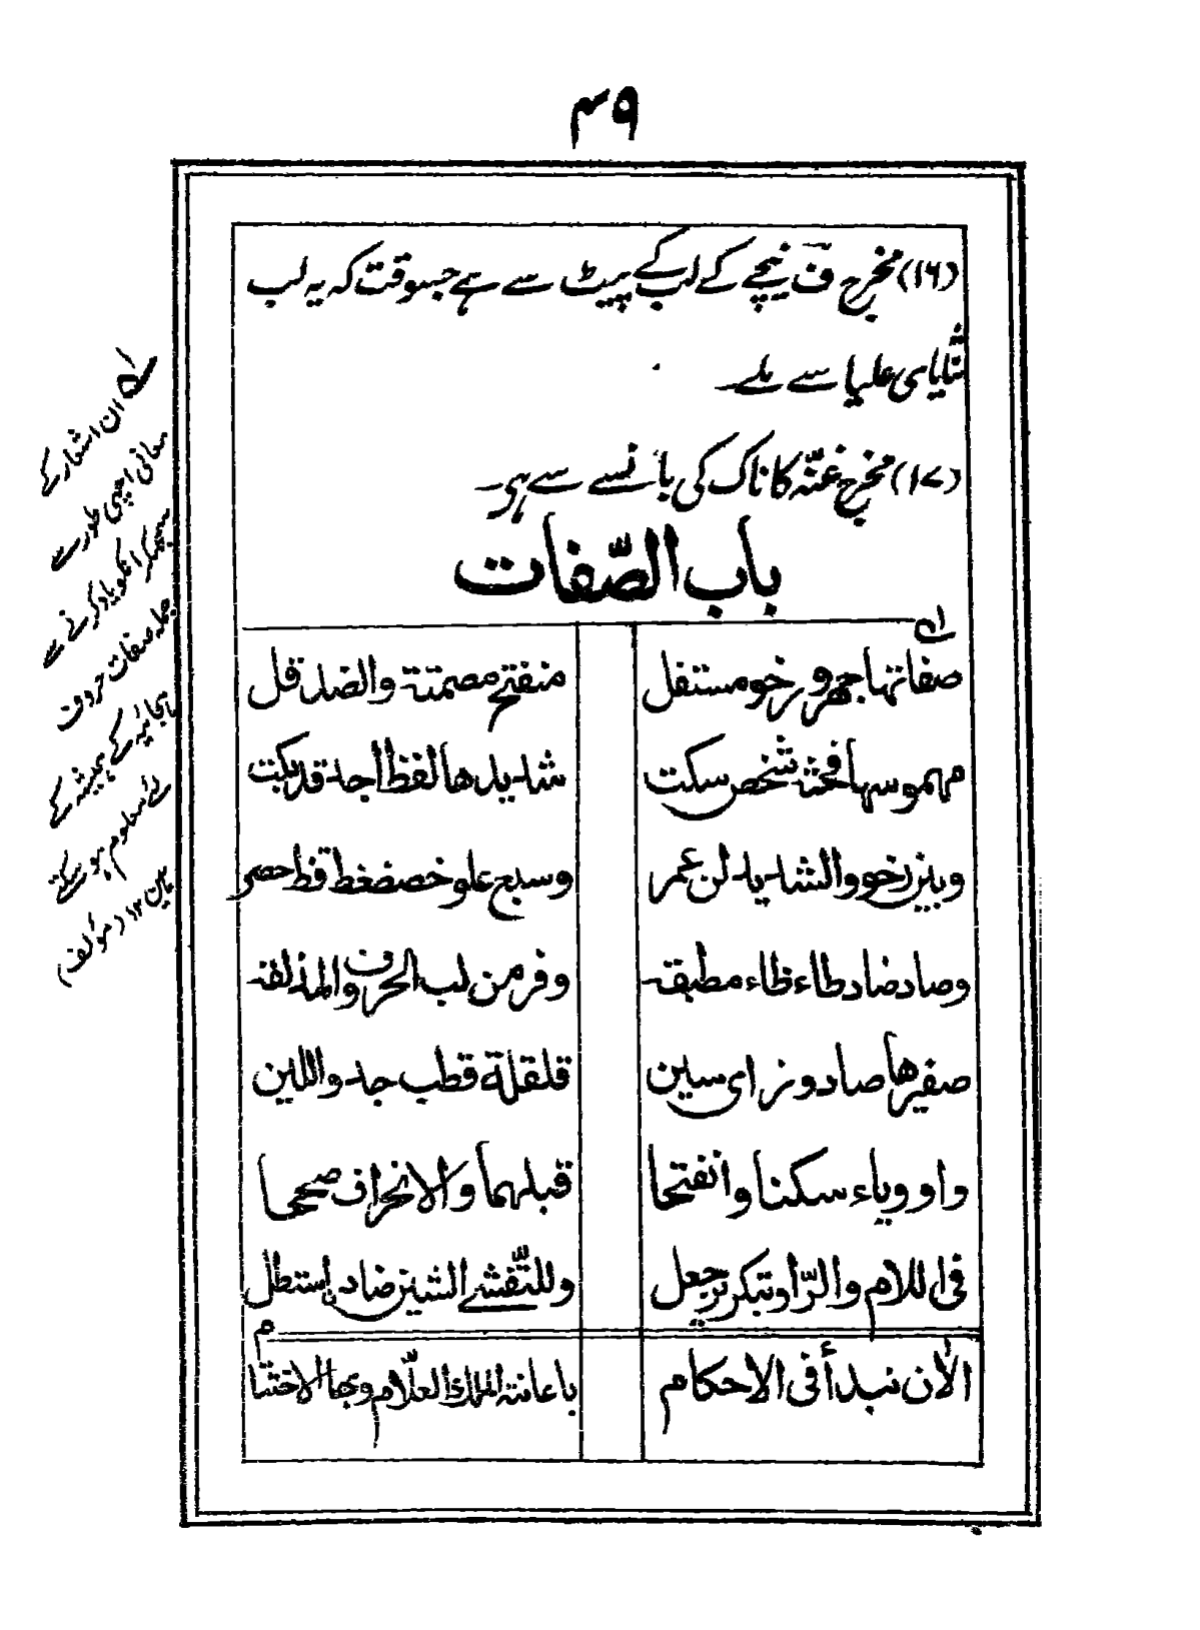 ۴۹
(۱۶) مخرج ف نیچے کے لب کے پیٹ سے ہے جسوقت کہ یہ لب
ثنایای علیا سے ملے۔
(۱۷) مخرج غنّہ کا ناک کی بانسے سے ہی۔
باب الصّفات
صفاتها جهر ورخو مستفل منفتح مصمتة والضد قل
مهموسها فحثه شخص سكت شديدها لفظ اجد قد بكت
وبين رخو والشديد لن عمر وسبع علو خص ضغط قظ حصر
وصاد ضاد طاء ظاء مطبقة وفر من لب الحروف المذلقة
صفيرها صاد وزاى سين قلقلة قطب جد واللين
واو وياء سكنا وانفتحا قبلهما والانحراف صححا
فى اللام والرّا وبتكرير جعل وللتّفشے الشين ضاد استطل
الأن نبدأ فى الاحكام باعانة الملك العلّام وبها الاختتام
لے ان اشعار کے
معانی اچھی طور سے
سمجھکر انکو یاد کرنے سے
جملہ صفات حروف
ہجائیہ کے ہمیشہ کے
لئے معلوم ہو سکتے
ہین ۱۲ (مؤلف)